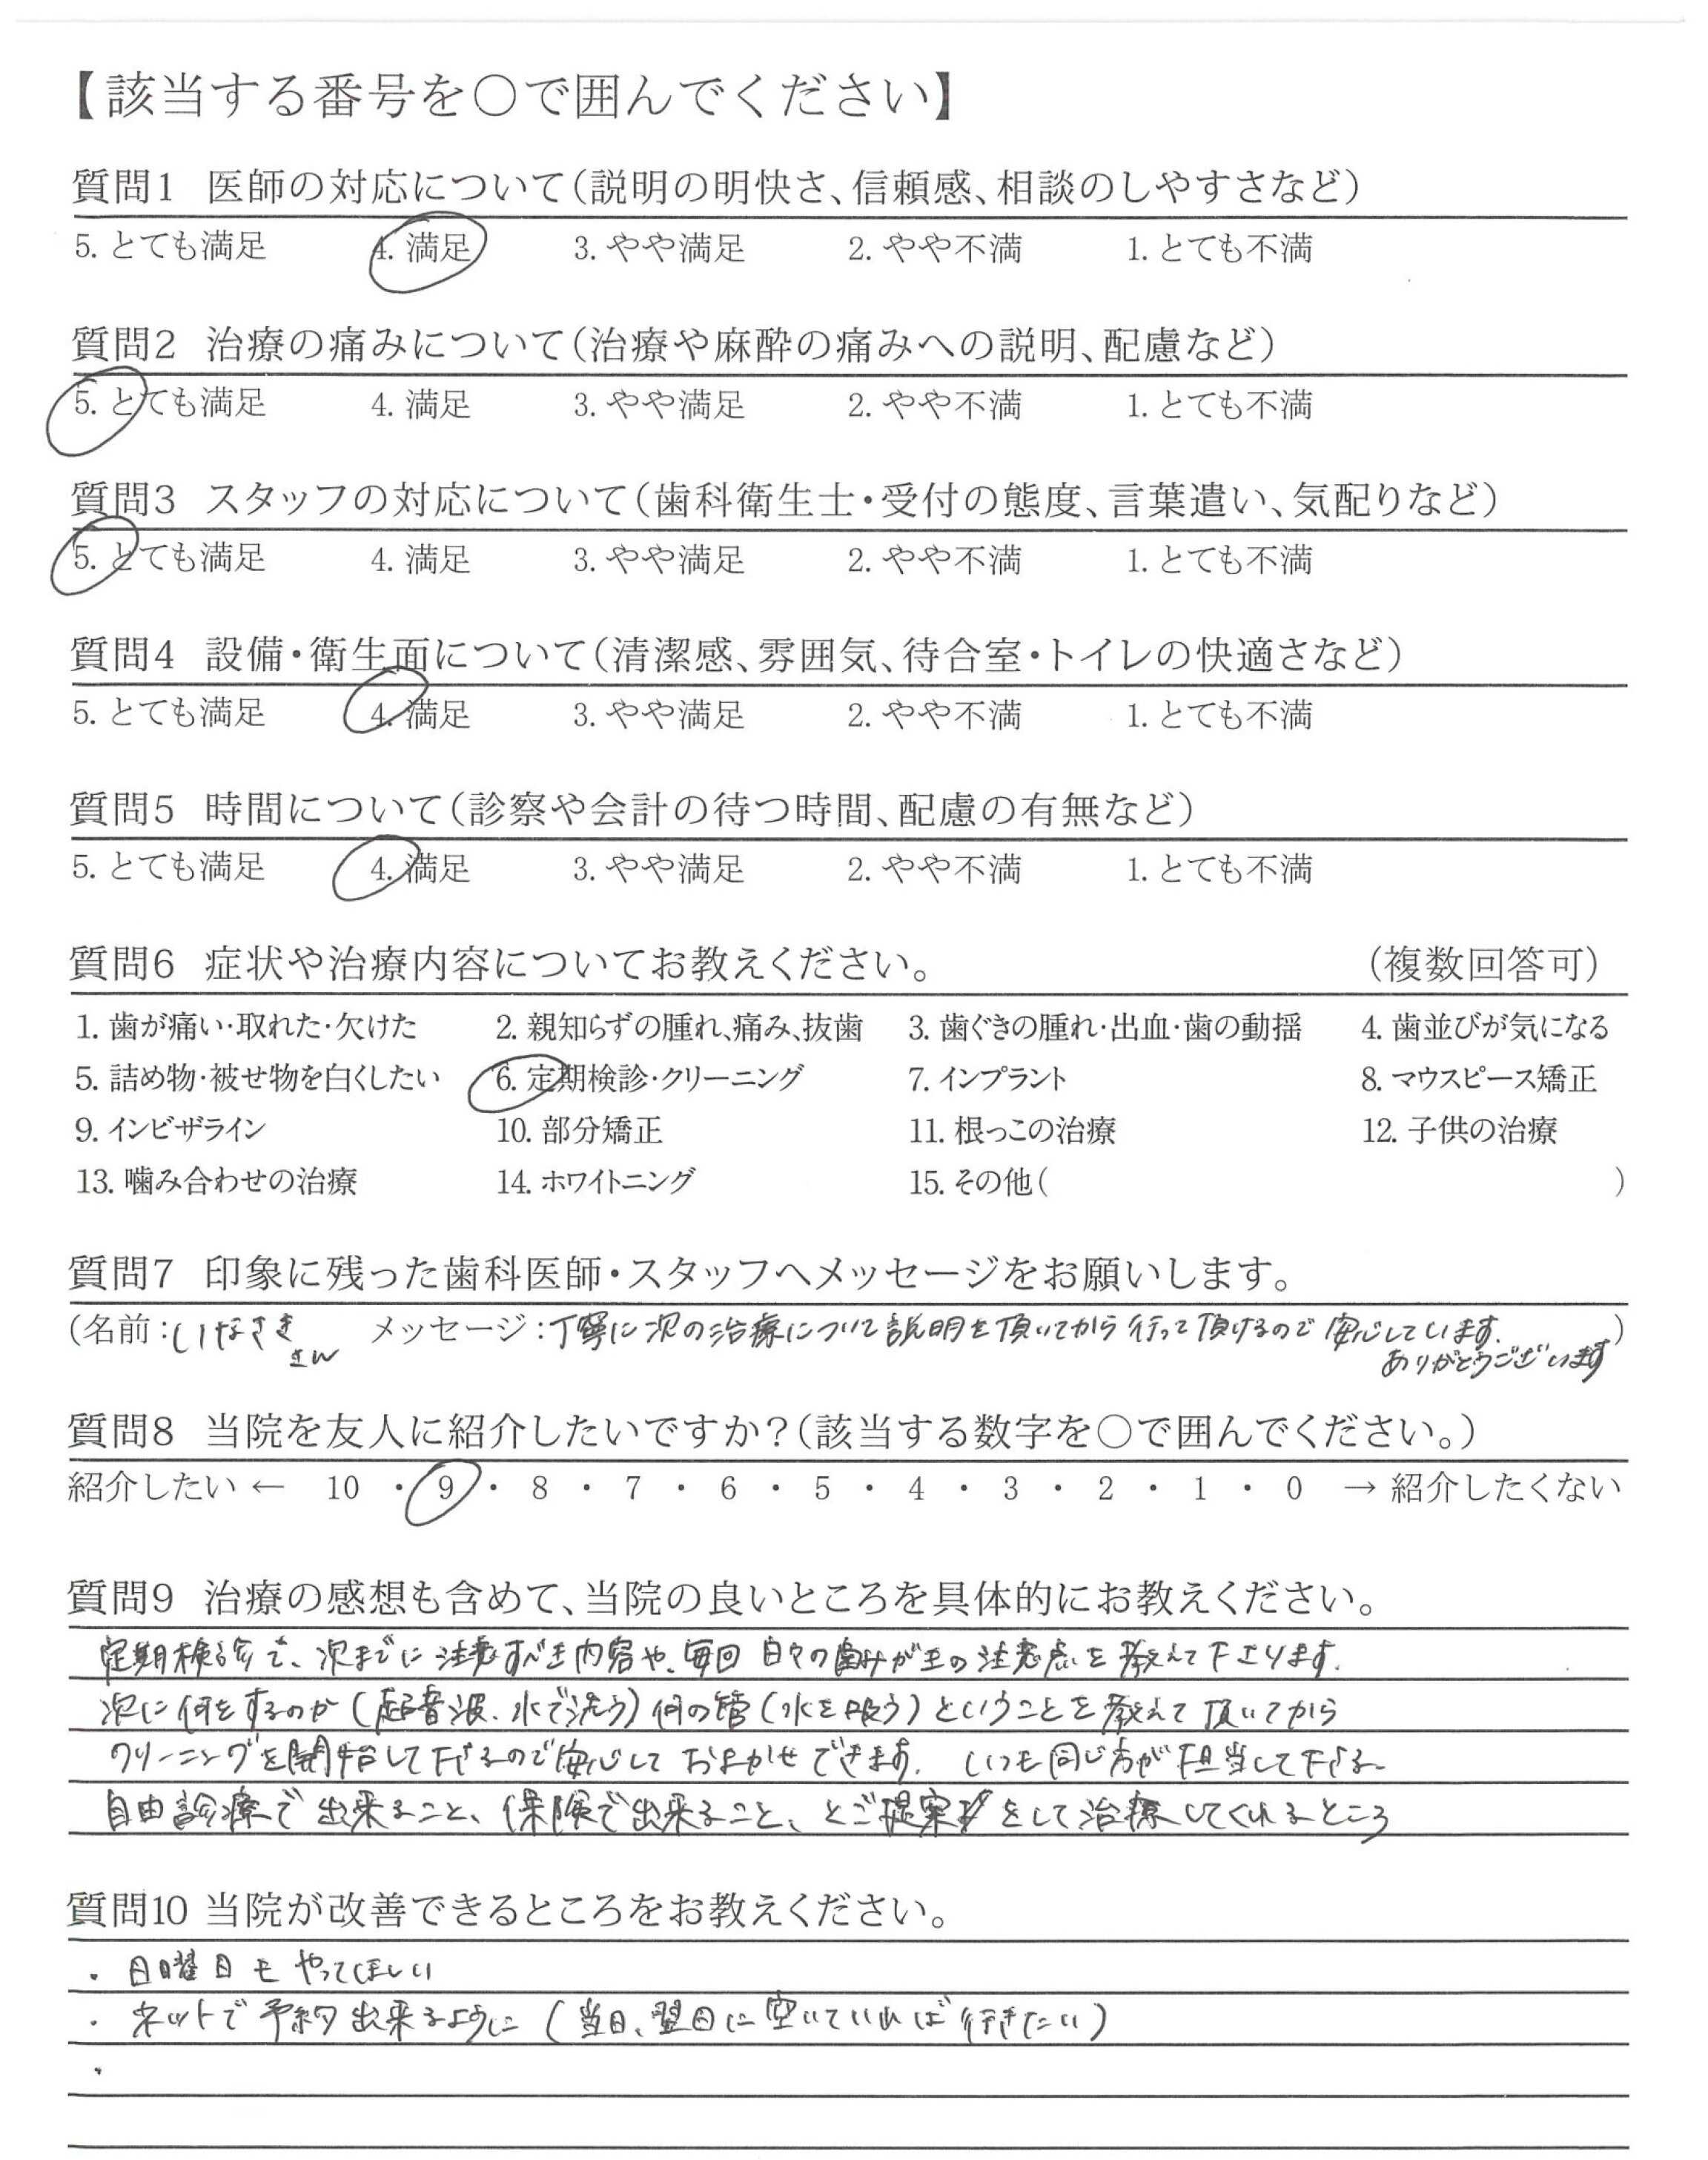 【該当する番号を○で囲んでください】
質問1 医師の対応について（説明の明快さ、信頼感、相談のしやすさなど）
5. とても満足 4. 満足 3. やや満足 2. やや不満 1. とても不満
質問2 治療の痛みについて（治療や麻酔の痛みへの説明、配慮など）
5. とても満足 4. 満足 3. やや満足 2. やや不満 1. とても不満
質問3 スタッフの対応について（歯科衛生士・受付の態度、言葉遣い、気配りなど）
5. とても満足 4. 満足 3. やや満足 2. やや不満 1. とても不満
質問4 設備・衛生面について（清潔感、雰囲気、待合室・トイレの快適さなど）
5. とても満足 4. 満足 3. やや満足 2. やや不満 1. とても不満
質問5 時間について（診察や会計の待つ時間、配慮の有無など）
5. とても満足 4. 満足 3. やや満足 2. やや不満 1. とても不満
質問6 症状や治療内容についてお教えください。 （複数回答可）
1. 歯が痛い・取れた・欠けた 2. 親知らずの腫れ、痛み、抜歯 3. 歯ぐきの腫れ・出血・歯の動揺 4. 歯並びが気になる
5. 詰め物・被せ物を白くしたい 6. 定期検診・クリーニング 7. インプラント 8. マウスピース矯正
9. インビザライン 10. 部分矯正 11. 根っこの治療 12. 子供の治療
13. 噛み合わせの治療 14. ホワイトニング 15. その他（ ）
質問7 印象に残った歯科医師・スタッフへメッセージをお願いします。
（名前：さん メッセージ：丁寧に次の治療について説明を頂いてから行って頂けるので安心しています。
ありがとうございます）
質問8 当院を友人に紹介したいですか？（該当する数字を○で囲んでください。）
紹介したい ← 10 ・ 9 ・ 8 ・ 7 ・ 6 ・ 5 ・ 4 ・ 3 ・ 2 ・ 1 ・ 0 → 紹介したくない
質問9 治療の感想も含めて、当院の良いところを具体的にお教えください。
定期検診で、次までに注意すべき内容や、毎回 日々の歯みがきの注意点を教えて下さります。
次に何をするのか（超音波、水で洗う）何の管（水を吸う）ということを教えて頂いてから
クリーニングを開始して下さるので安心しておまかせできます。 いつも同じ方が担当して下さる
自由診療で出来ること、保険で出来ること、とご提案をして治療してくれるところ
質問10 当院が改善できるところをお教えください。
・日曜日もやってほしい
・ネットで予約出来るように（当日、翌日に空いていれば行きたい）
・